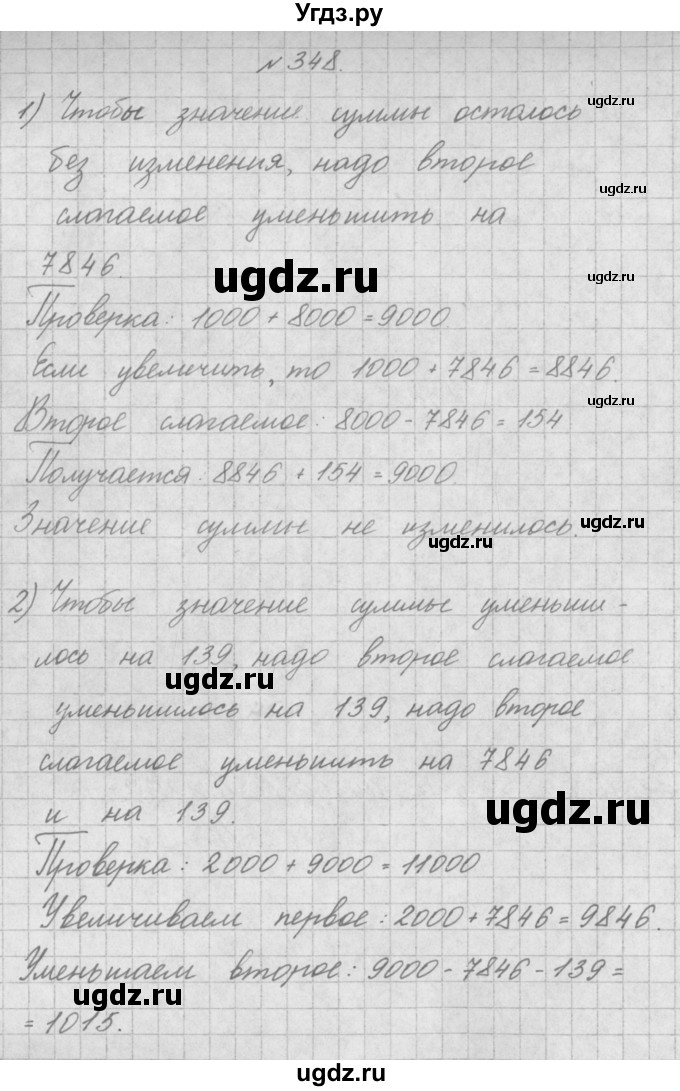 Угдз.ру
№348.
1) Чтобы значение суммы осталось
без изменения, надо второе
слагаемое уменьшить на
7846.
Проверка: 1000 + 8000 = 9000.
Если увеличить, то 1000 + 7846 = 8846.
Второе слагаемое: 8000 - 7846 = 154
Получается: 8846 + 154 = 9000.
Значение суммы не изменилось.
2) Чтобы значение суммы уменьши-
лось на 139, надо второе слагаемое
уменьшилось на 139, надо второе
слагаемое уменьшить на 7846
и на 139.
Проверка: 2000 + 9000 = 11000
Увеличиваем первое: 2000 + 7846 = 9846.
Уменьшаем второе: 9000 - 7846 - 139 =
= 1015.
ugdz.ru
ugdz.ru
ugdz.ru
ugdz.ru
ugdz.ru
ugdz.ru
ugdz.ru
ugdz.ru
ugdz.ru
ugdz.ru
ugdz.ru
ugdz.ru